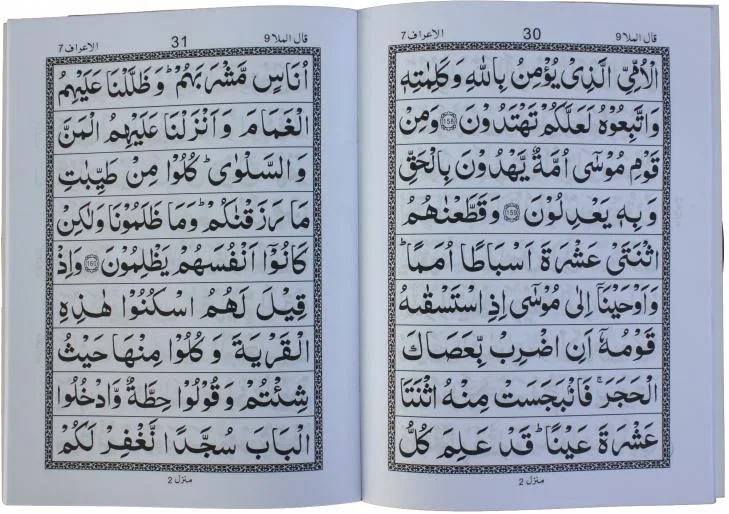 قال الملا 9
30
الاعراف 7
الْاُمِّیِّ الَّذِیْ یُؤْمِنُ بِاللّٰهِ وَ كَلِمٰتِهٖ
وَ اتَّبِعُوْهُ لَعَلَّكُمْ تَهْتَدُوْنَ 158 وَ مِنْ
قَوْمِ مُوْسٰۤى اُمَّةٌ یَّهْدُوْنَ بِالْحَقِّ
وَ بِهٖ یَعْدِلُوْنَ 159 وَ قَطَّعْنٰهُمُ
اثْنَتَیْ عَشْرَةَ اَسْبَاطًا اُمَمًاؕ
وَ اَوْحَیْنَاۤ اِلٰى مُوْسٰۤى اِذِ اسْتَسْقٰىهُ
قَوْمُهٗۤ اَنِ اضْرِبْ بِّعَصَاكَ
الْحَجَرَۚ فَانْۢبَجَسَتْ مِنْهُ اثْنَتَا
عَشْرَةَ عَیْنًاؕ قَدْ عَلِمَ كُلُّ
منزل 2
31
الاعراف 7
قال الملا 9
اُنَاسٍ مَّشْرَبَهُمْؕ وَ ظَلَّلْنَا عَلَیْهِمُ
الْغَمَامَ وَ اَنْزَلْنَا عَلَیْهِمُ الْمَنَّ
وَ السَّلْوٰىؕ كُلُوْا مِنْ طَیِّبٰتِ
مَا رَزَقْنٰكُمْؕ وَ مَا ظَلَمُوْنَا وَ لٰكِنْ
كَانُوْۤا اَنْفُسَهُمْ یَظْلِمُوْنَ 160 وَ اِذْ
قِیْلَ لَهُمُ اسْكُنُوْا هٰذِهِ
الْقَرْیَةَ وَ كُلُوْا مِنْهَا حَیْثُ
شِئْتُمْ وَ قُوْلُوْا حِطَّةٌ وَّ ادْخُلُوا
الْبَابَ سُجَّدًا نَّغْفِرْ لَكُمْ
منزل 2